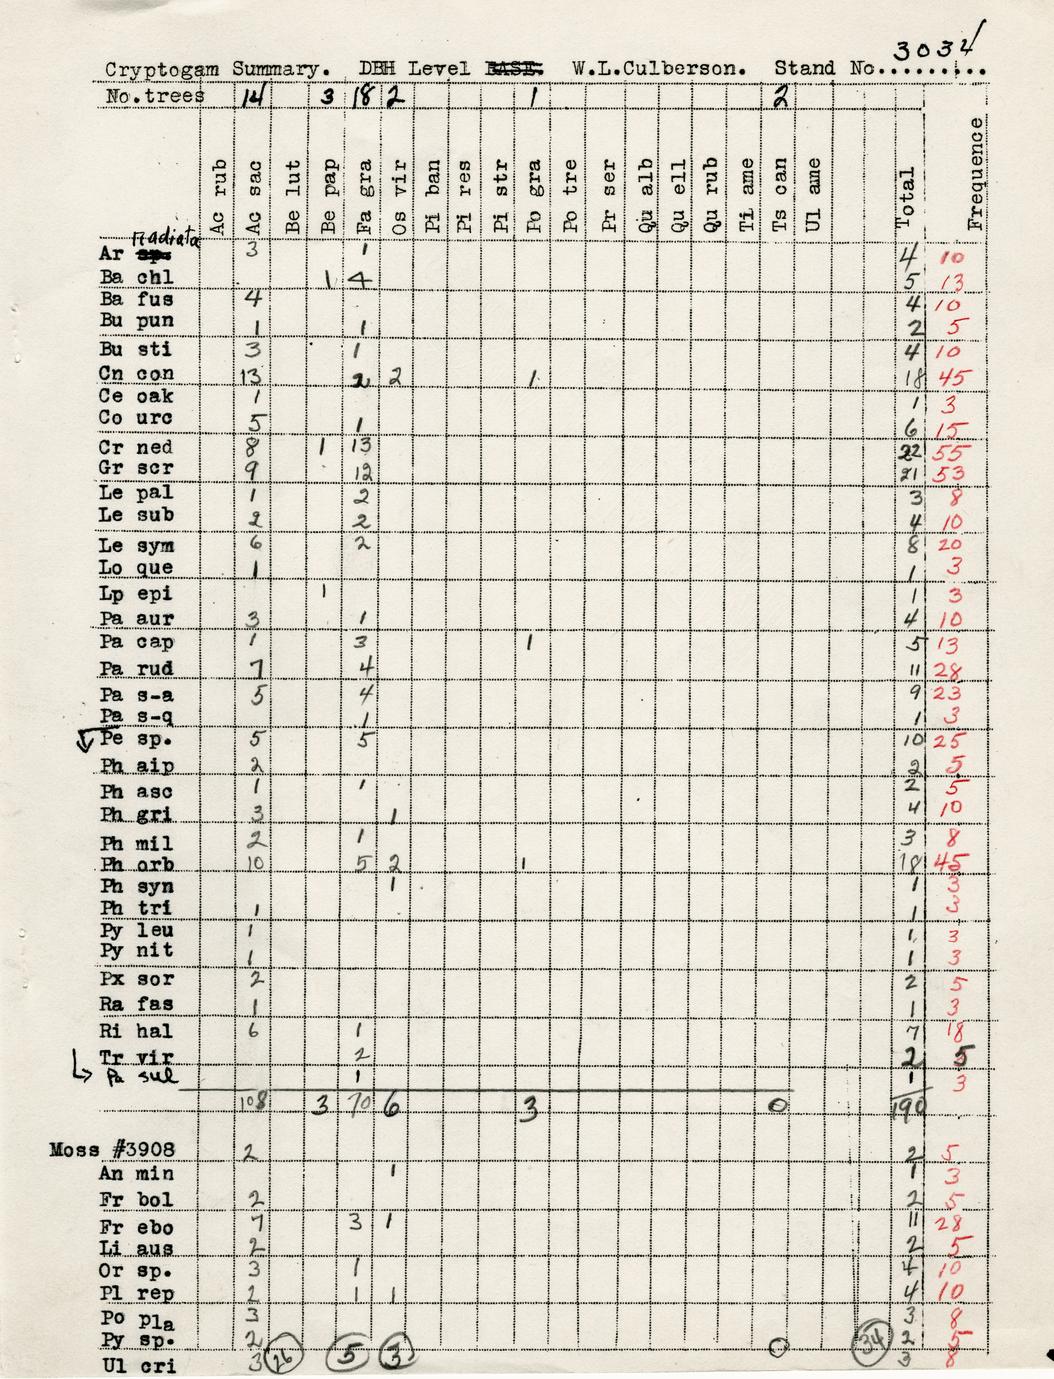 3034
Cryptogam Summary. DBH Level BASE. W.L.Culberson. Stand No.........
No.trees 14 3 18 2 1 2
Ac rub Ac sac Be lut Be pap Fa gra Os vir Pi ban Pi res Pi str Po gra Po tre Pr ser Qu alb Qu ell Qu rub Ti ame Ts can Ul ame Total Frequence
radiata
Ar sp. 3 1 4 10
Ba chl 1 4 5 13
Ba fus 4 4 10
Bu pun 1 1 2 5
Bu sti 3 1 4 10
Cn con 13 2 2 1 18 45
Ce oak 1 1 3
Co urc 5 1 6 15
Cr ned 8 1 13 22 55
Gr scr 9 12 21 53
Le pal 1 2 3 8
Le sub 2 2 4 10
Le sym 6 2 8 20
Lo que 1 1 3
Lp epi 1 1 3
Pa aur 3 1 4 10
Pa cap 1 3 1 5 13
Pa rud 7 4 11 28
Pa s-a 5 4 9 23
Pa s-q 1 1 3
Pe sp. 5 5 10 25
Ph aip 2 2 5
Ph asc 1 1 2 5
Ph gri 3 1 4 10
Ph mil 2 1 3 8
Ph orb 10 5 2 1 18 45
Ph syn 1 1 3
Ph tri 1 1 3
Py leu 1 1 3
Py nit 1 1 3
Px sor 2 2 5
Ra fas 1 1 3
Ri hal 6 1 7 18
Tr vir 2 2 5
Pa sul 1 1 3
108 3 70 6 3 0 190
Moss #3908 2 2 5
An min 1 1 3
Fr bol 2 2 5
Fr ebo 7 3 1 11 28
Li aus 2 2 5
Or sp. 3 1 4 10
Pl rep 2 1 1 4 10
Po pla 3 3 8
Py sp. 2 0 34 2 5
Ul cri 3 26 5 3 3 8